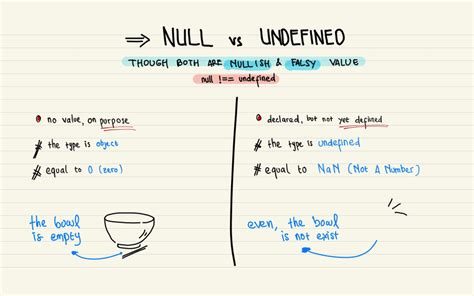 ⇒ NULL vs UNDEFINED
THOUGH BOTH ARE NULLISH & FALSY VALUE
null !== undefined
no value, on purpose
# the type is object
# equal to 0 (zero)
the bowl
is empty
declared, but not yet defined
# the type is undefined
# equal to NaN (Not A Number)
even, the bowl
is not exist